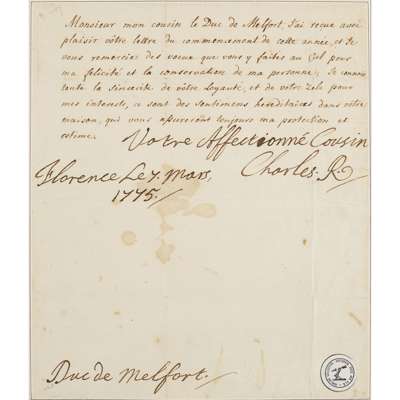 Monsieur mon cousin le Duc de Melfort, J'ai reçue avec
plaisir vôtre lettre du commencement de cette année, et Je
vous remercie des voeux que vous y faites au Ciel pour
ma felicité et la conservation de ma personne; Je connois
toute la Sincerité de vôtre Loyauté, et de vôtre Zele pour
mes interets, ce sont des sentimens hereditaires dans vôtre
maison, qui vous assureront toujours ma protection et
estime.
Votre Affectionné Cousin
Charles. R.
Florence Le 7. Mars,
1775.
Duc de Melfort.